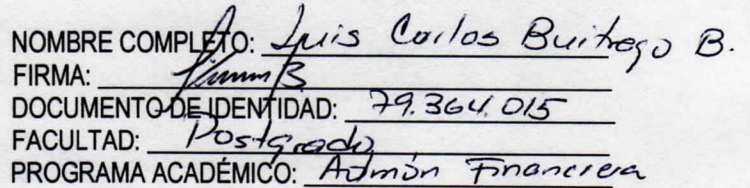 NOMBRE COMPLETO: Luis Carlos Buitrago B.
FIRMA:
DOCUMENTO DE IDENTIDAD: 79.364.015
FACULTAD: Postgrado
PROGRAMA ACADÉMICO: Admón Financiera